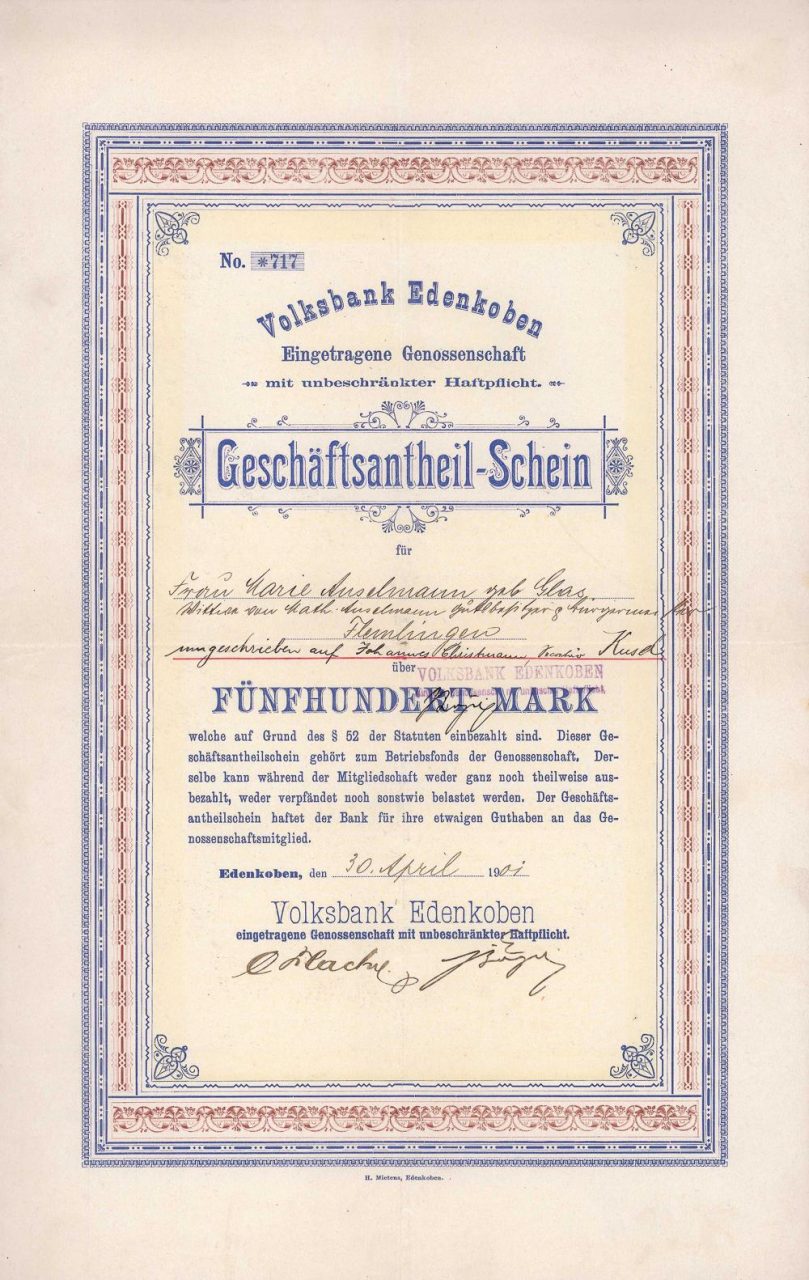 No. *717
Volksbank Edenkoben
Eingetragene Genossenschaft
mit unbeschränkter Haftpflicht.
Geschäftsantheil-Schein
für
Frau Marie Anselmann geb Glas.
Wittwe von Math. Anselmann Gutsbesitzer & Bürgermeister
Flemlingen
umgeschrieben auf Johannes Christmann, Kusel
über
VOLKSBANK EDENKOBEN
FÜNFHUNDERT MARK
welche auf Grund des § 52 der Statuten einbezahlt sind. Dieser Ge-
schäftsantheilschein gehört zum Betriebsfonds der Genossenschaft. Der-
selbe kann während der Mitgliedschaft weder ganz noch theilweise aus-
bezahlt, weder verpfändet noch sonstwie belastet werden. Der Geschäfts-
antheilschein haftet der Bank für ihre etwaigen Guthaben an das Ge-
nossenschaftsmitglied.
Edenkoben, den 30. April 1901
Volksbank Edenkoben
eingetragene Genossenschaft mit unbeschränkter Haftpflicht.
H. Mietens, Edenkoben.